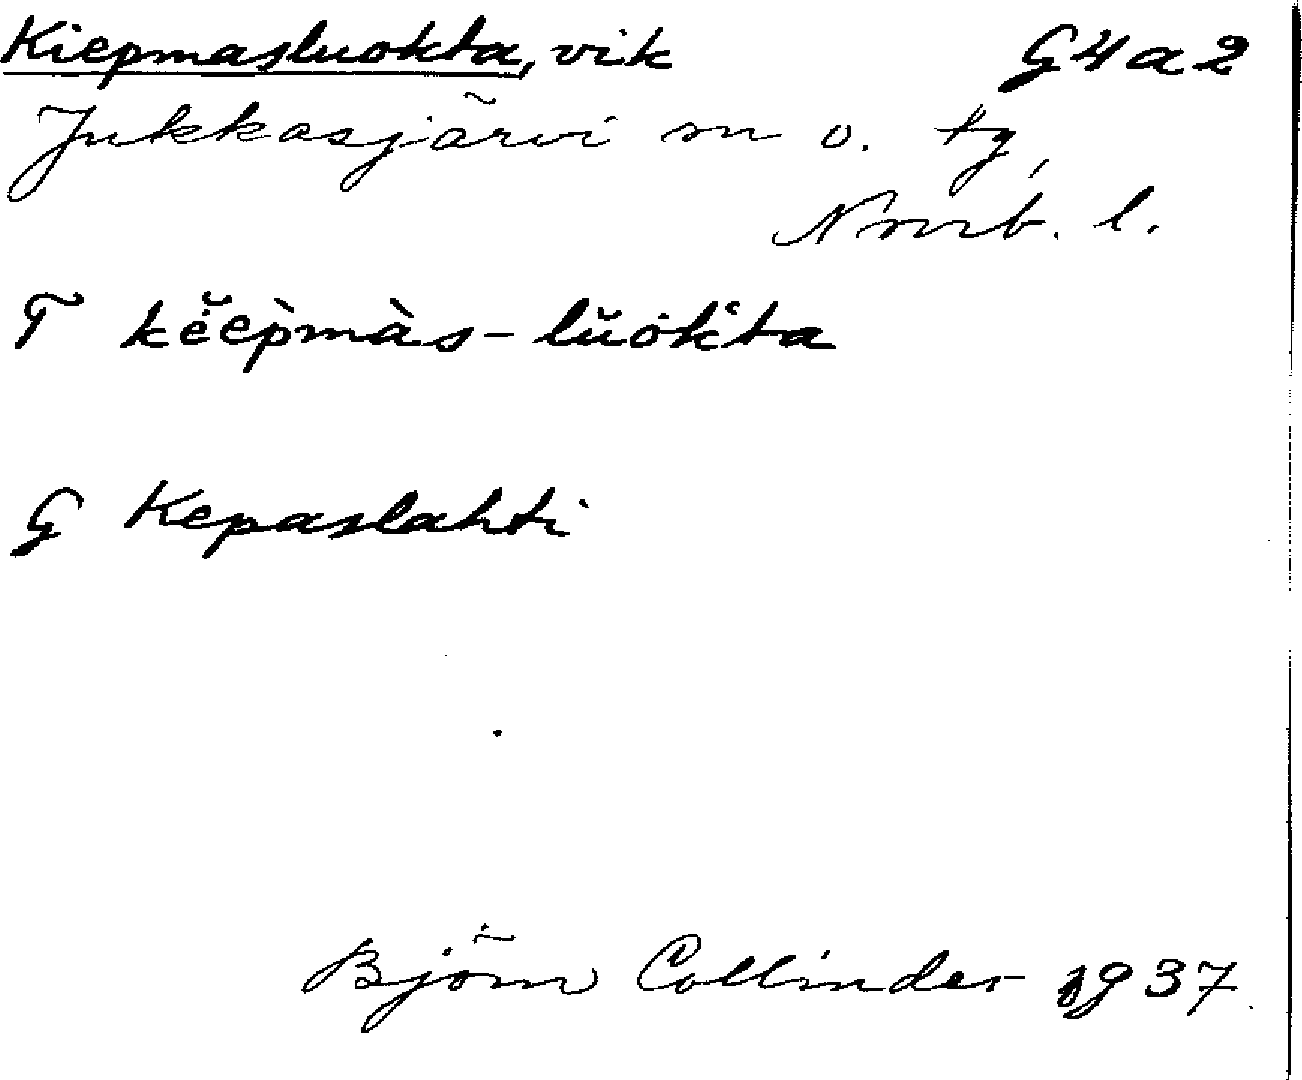 Kiepmasluokta, vik G4a2
Jukkasjärvi sn o. tg,
Norrb. l.
T kĕ̇ep̀màs-lŭȯk̔ta
G Kepaslahti
Björn Collinder 1937